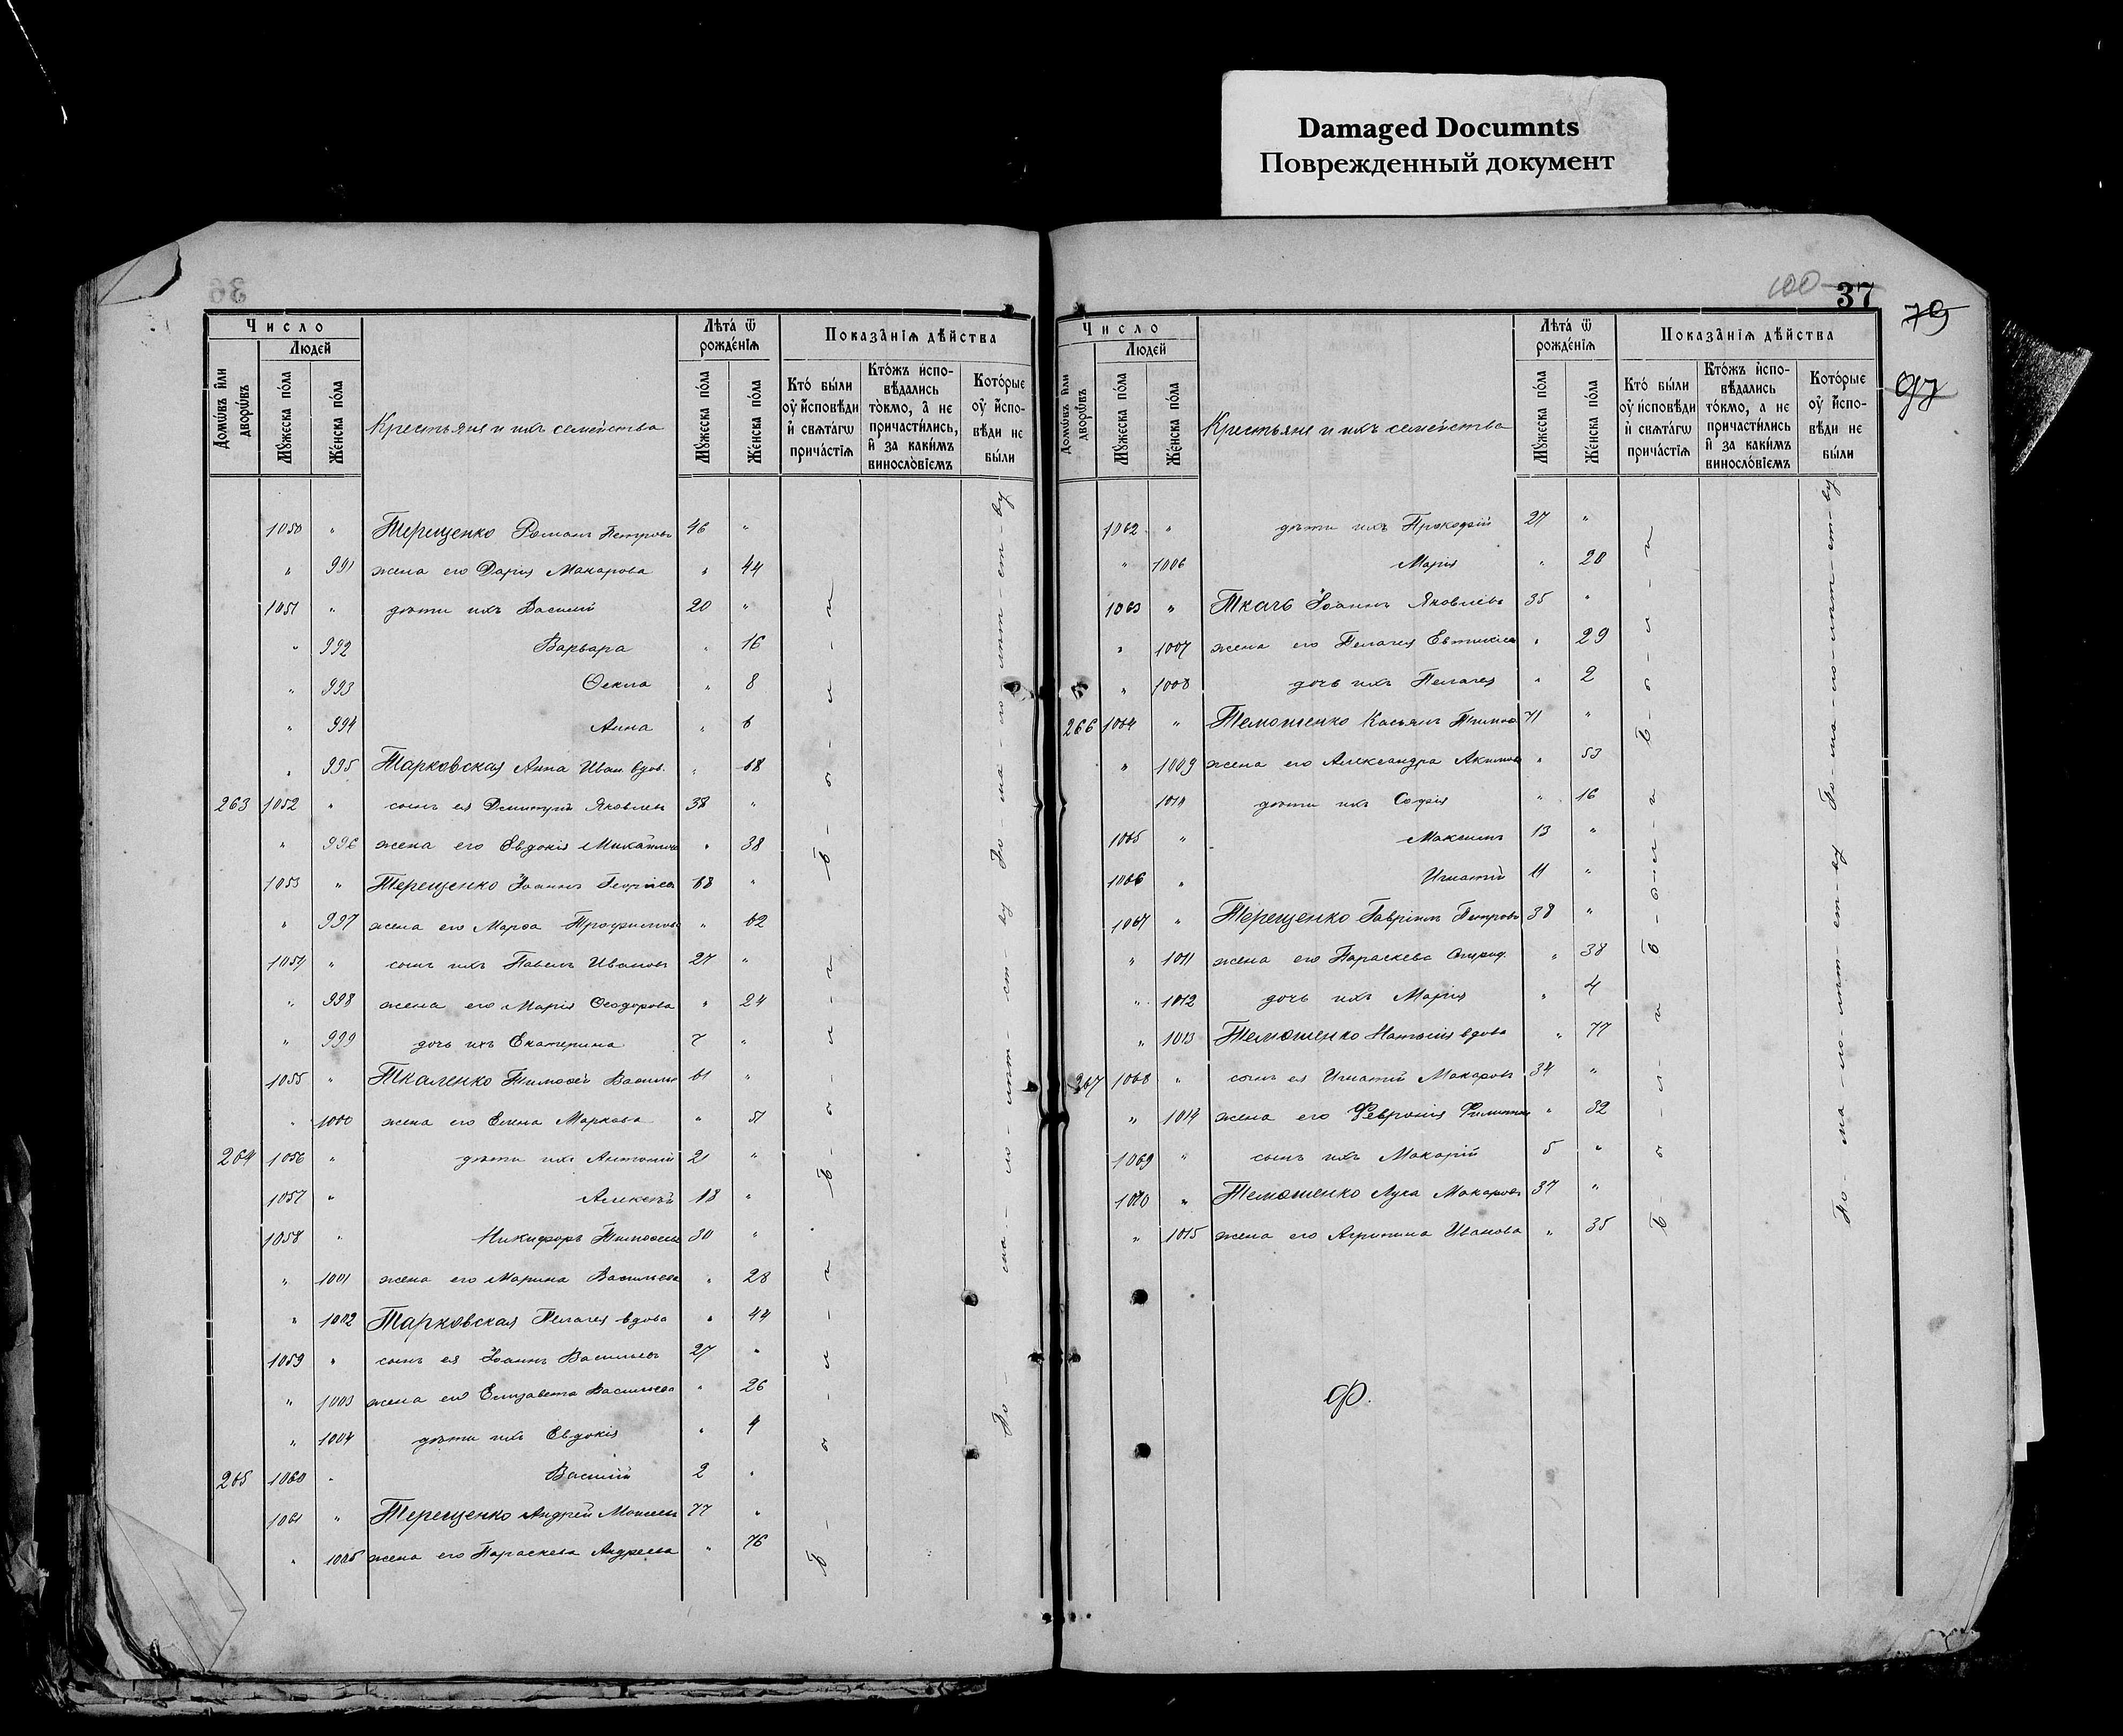 Damaged Documnts
Поврежденный документ
36
Число
Людей
Домѡвъ или дворѡвъ
Мꙋжеска пола
Женска пола
Крестьяне и ихъ семейства
Лѣта ѿ рожденїѧ
Мꙋжеска пола
Женска пола
Показанїѧ дѣйства
Кто были оу исповѣди и свѧтагѡ причастїѧ
Ктожъ испо-вѣдались токмо, а не причастились, и за какимъ винословїемъ
Которые оу испо-вѣди не были
1050 " Терещенко Романъ Петровъ 46 "
" 991 жена его Дарія Макарова " 44
1051 " дѣти ихъ Василій 20 "
" 992 Варвара " 16
" 993 Ѳекла " 8
" 994 Анна " 6
" 995 Тарковская Анна Иван. вдов. " 68
263 1052 " сынъ ея Дмитрій Яковлевъ 38 "
" 996 жена его Евдокія Михайлова " 38
1053 " Терещенко Іоаннъ Георгіев 68 "
" 997 жена его Марѳа Трофимова " 62
1054 " сынъ ихъ Павелъ Ивановъ 27 "
" 998 жена его Марія Ѳеодорова " 24
" 999 дочь ихъ Екатерина 7 "
1055 " Ткаленко Тимоѳей Василье 61 "
" 1000 жена его Елена Маркова " 51
264 1056 " дѣти ихъ Антоній 21 "
1057 " Алексѣй 18 "
1058 " Никифоръ Тимоѳеевъ 30 "
" 1001 жена его Марина Васильева " 28
" 1002 Тарковская Пелагея вдова " 44
1059 " сынъ ея Іоаннъ Васильевъ 27 "
" 1003 жена его Елизавета Васильева " 26
" 1004 дѣти ихъ Евдокія " 4
265 1060 " Василій 2 "
1061 " Терещенко Андрей Моисеевъ 77 "
" 1005 жена его Параскева Андреева " 76
б-ы-л-и
б-ы-л-и
б-ы-л-и
100
37
79
97
Число
Людей
Домѡвъ или дворѡвъ
Мꙋжеска пола
Женска пола
Крестьяне и ихъ семейства
Лѣта ѿ рожденїѧ
Мꙋжеска пола
Женска пола
Показанїѧ дѣйства
Кто были оу исповѣди и свѧтагѡ причастїѧ
Ктожъ испо-вѣдались токмо, а не причастились и за какимъ винословїемъ
Которые оу испо-вѣди не были
1062 " дѣти ихъ Прокофій 27 "
" 1006 Марія " 20
1063 " Ткачъ Іоаннъ Яковлевъ 35 "
" 1007 жена его Пелагея Евтихіева " 29
" 1008 дочь ихъ Пелагея " 2
266 1064 " Темошенко Касьянъ 71 "
" 1009 жена его Александра Акимова " 53
1010 дѣти ихъ Софія " 16
1065 " Максимъ 13 "
1066 " Игнатій 11 "
1067 " Терещенко Гавріилъ Петровъ 38 "
" 1011 жена его Параскева " 38
" 1012 дочь ихъ Марія " 4
" 1013 Темошенко Наталія вдова " 77
267 1068 " сынъ ея Игнатій Макаровъ 34 "
" 1014 жена его Февронія " 32
1069 " сынъ ихъ Макарій 5 "
1070 " Темошенко Лука Макаровъ 37 "
" 1015 жена его Агрипина Иванова " 35
б-ы-л-и
б-ы-л-и
б-ы-л-и